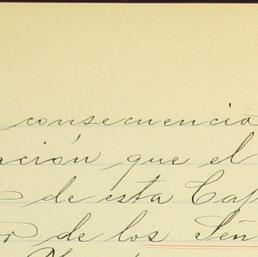 consecuencia
ación que el
de esta Cap
or de los Señ